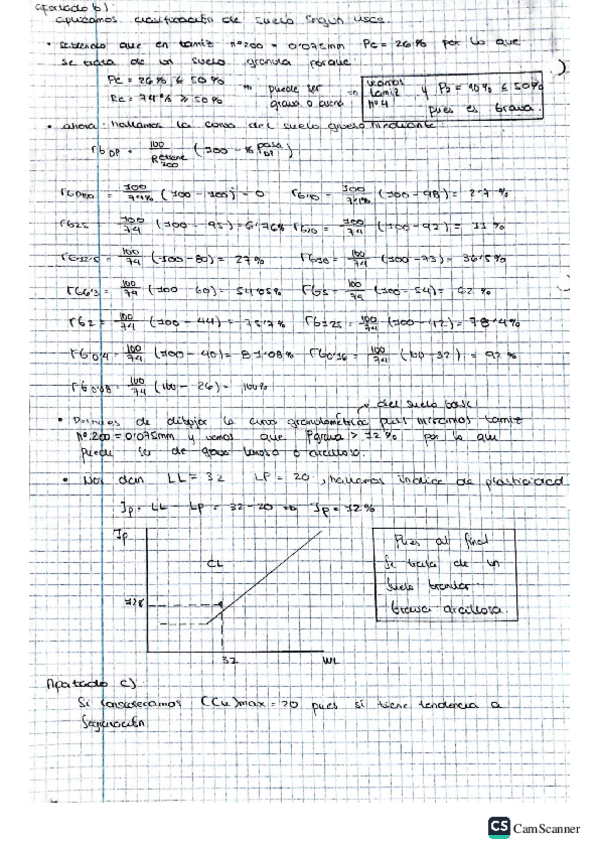 apartado b)
aplicamos clasificación de suelo según USCS.
• Sabiendo que en tamiz nº200 = 0'075mm Pc = 26% por lo que
se trata de un suelo granular porque:
Pc = 26% ≤ 50%
Rc = 74% ≥ 50%
puede ser
grava o
vamos
tamiz
Nº4
y P₂ = 40% ≤ 50%
pues es Grava.
• ahora hallamos la curva del suelo grueso mediante:
rG DP = 100/Retiene 200 (100 - % pasa DP)
= 100/74% (100 - 100) = 0 rG40 = 100/74% (100 - 98) = 2'7 %
rG25 = 100/74 (100 - 95) = 6'76% rG20 = 100/74 (100 - 92) = 11 %
rG12'5 = 100/74 (100 - 80) = 27% rG10 = 100/74 (100 - 73) = 36'5%
rG6'3 = 100/74 (100 - 60) = 54'05% rG5 = 100/74 (100 - 54) = 62 %
rG2 = 100/74 (100 - 44) = 75'7% rG1'25 = 100/74 (100 - 42) = 78'4%
rG0'4 = 100/74 (100 - 40) = 81'08% rG0'16 = 100/74 (100 - 32) = 92 %
rG0'08 = 100/74 (100 - 26) = 100%
del suelo base
• Después de dibujar la curva granulométrica pues miramos tamiz
Nº.200 = 0'075mm y vemos que > 12% por lo que
puede ser de grava limosa o arcillosa.
• Nos dan LL = 32 LP = 20, hallamos índice de plasticidad
Ip = LL - LP = 32 - 20 Ip = 12%
Ip
CL
32
WL
Pues al final
se trata de un
suelo granular
Grava arcillosa.
Apartado c)
Si consideramos (Cu)max = 20 pues si tiene tendencia a
segregación.
CS CamScanner